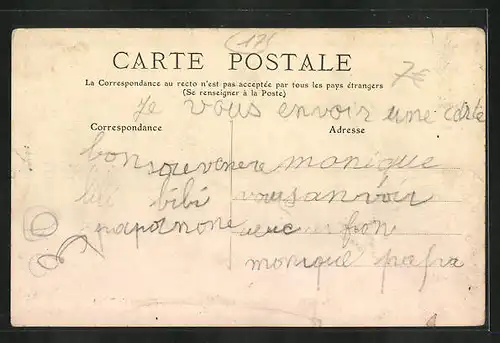 (17)
CARTE POSTALE
7€
La Correspondance au recto n'est pas acceptée par tous les pays étrangers
(Se renseigner à la Poste)
Je vous envoir une carte
Correspondance
Adresse
bon souvenere monique
bibi vous
monique